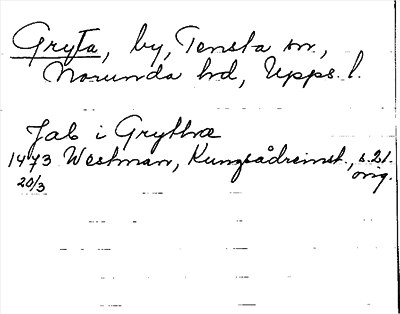 Gryta, by, Tensta sn.,
Norunda hd, Upps. l.
Jab i Gryttræ
1473 Westman, Kungsådreinst., s. 21.
20/3 orig.